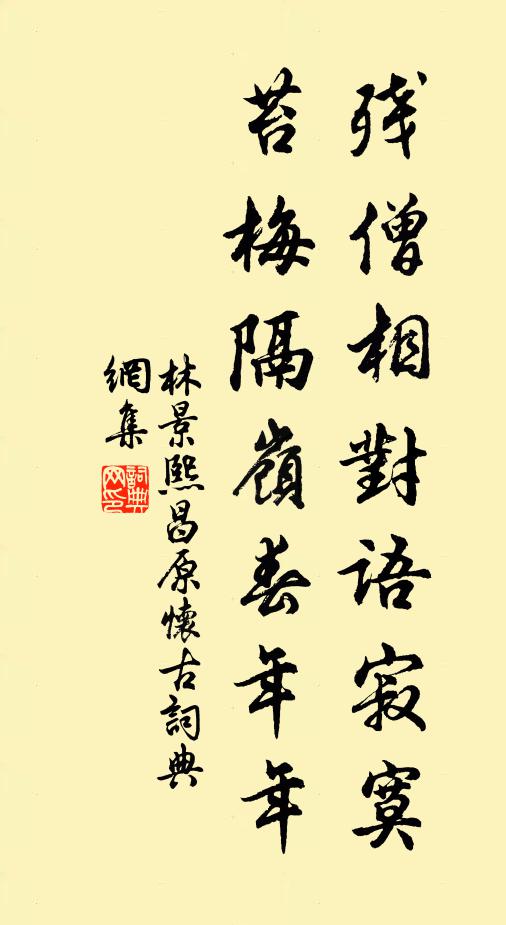 残僧相對語寂寞
苔梅隔嶺春年年
林景熙昌原懷古詞典
網集
詞典网印